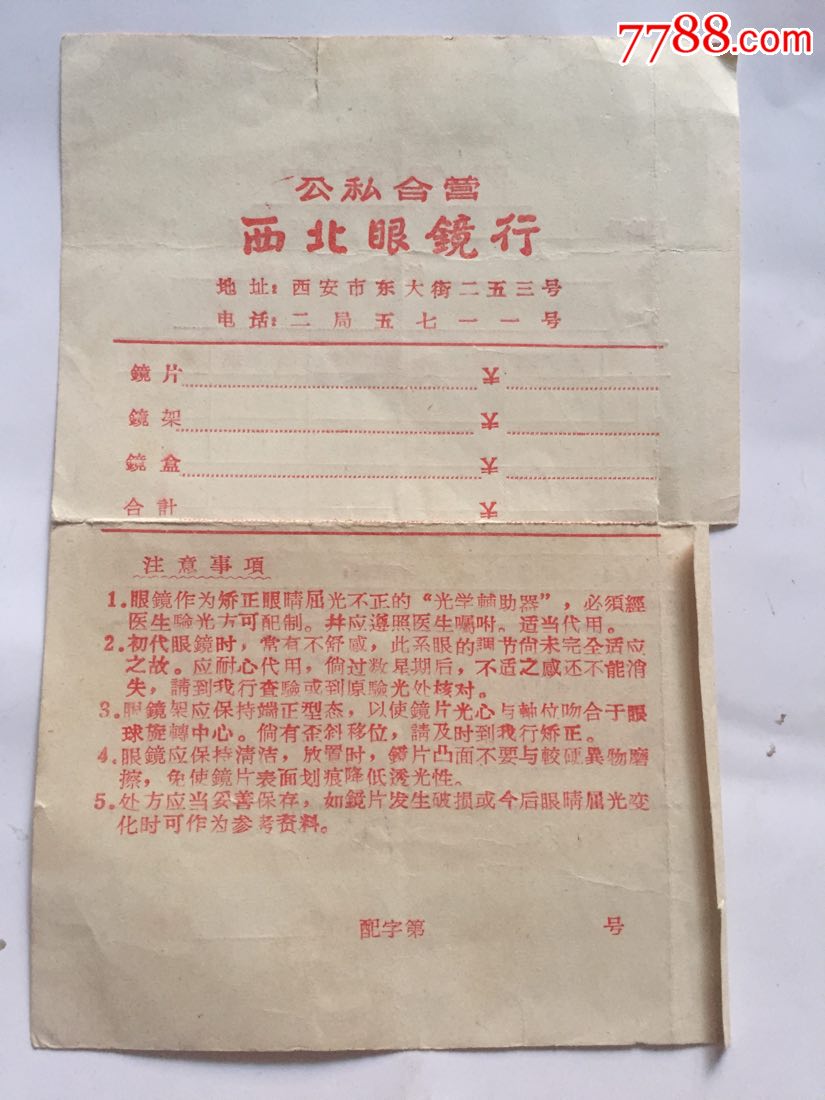 7788.com
公私合营
西北眼鏡行
地址：西安市东大街二五三号
电话：二局五七一一号
鏡片
鏡架
鏡盒
合計
注意事項
1.眼鏡作为矫正眼睛屈光不正的“光学輔助器”，必須經
医生驗光方可配制。并应遵照医生嘱咐。适当代用。
2.初代眼鏡时，常有不舒感，此系眼的調节倘未完全适应
之故。应耐心代用，倘过数星期后，不适之感还不能消
失，請到我行查驗或到原驗光处核对。
3.眼鏡架应保持端正型态，以使鏡片光心与軸位吻合于眼
球旋轉中心。倘有歪斜移位，請及时到我行矫正。
4.眼鏡应保持清洁，放置时，鏡片凸面不要与較硬異物磨
擦，免使鏡片表面划痕降低透光性。
5.处方应当妥善保存，如鏡片发生破损或今后眼睛屈光变
化时可作为参考资料。
配字第 号